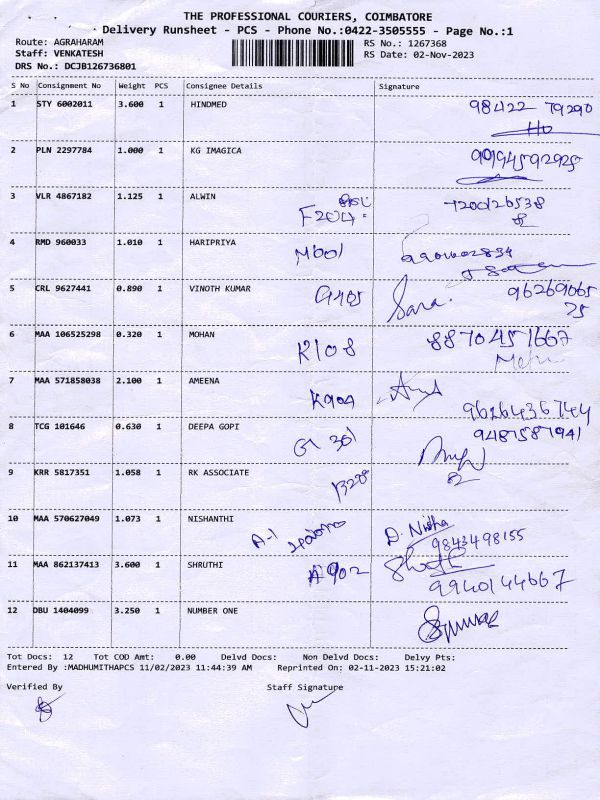 THE PROFESSIONAL COURIERS, COIMBATORE
Delivery Runsheet - PCS - Phone No.:0422-3505555 - Page No.:1
Route: AGRAHARAM
RS No.: 1267368
Staff: VENKATESH
RS Date: 02-Nov-2023
DRS No.: DCJB126736801
S No Consignment No Weight PCS Consignee Details Signature
1 STY 6002011 3.600 1 HINDMED 98422 79290
2 PLN 2297784 1.000 1 KG IMAGICA
3 VLR 4867182 1.125 1 ALWIN F204
4 RMD 960033 1.010 1 HARIPRIYA M601
5 CRL 9627441 0.890 1 VINOTH KUMAR G405 Sara. 96269065
25
6 MAA 106525298 0.320 1 MOHAN K108 8870451667
7 MAA 571858038 2.100 1 AMEENA K904 9626436744
8 TCG 101646 0.630 1 DEEPA GOPI G 301 9487587941
9 KRR 5817351 1.058 1 RK ASSOCIATE
10 MAA 570627049 1.073 1 NISHANTHI A-1 D. Nisha
9843498155
11 MAA 862137413 3.600 1 SHRUTHI A902
9940144667
12 DBU 1404099 3.250 1 NUMBER ONE
Tot Docs: 12 Tot COD Amt: 0.00 Delvd Docs: Non Delvd Docs: Delvy Pts:
Entered By :MADHUMITHAPCS 11/02/2023 11:44:39 AM Reprinted On: 02-11-2023 15:21:02
Verified By Staff Signature